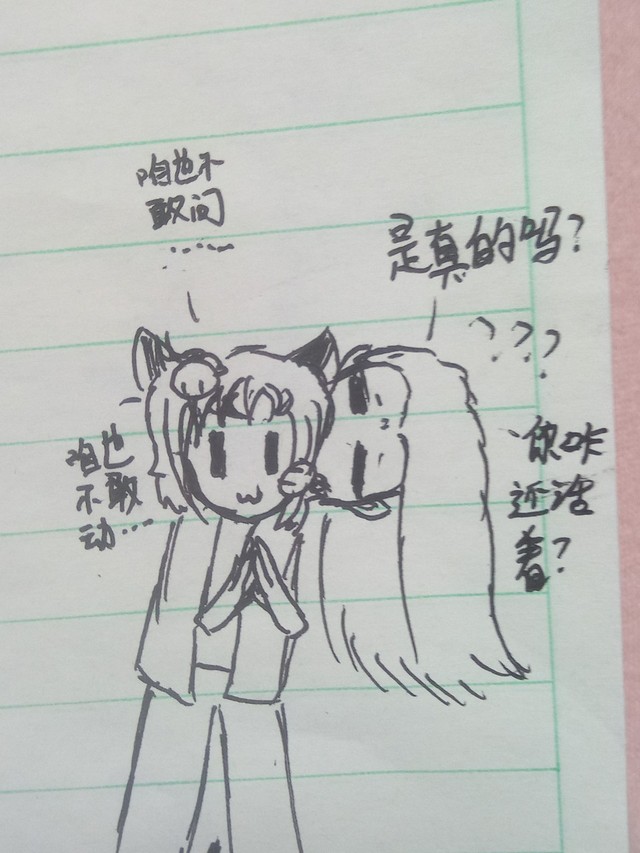 咱也不
敢问
……
是真的吗?
???
咱也
不敢
动…
你咋
还活
着?